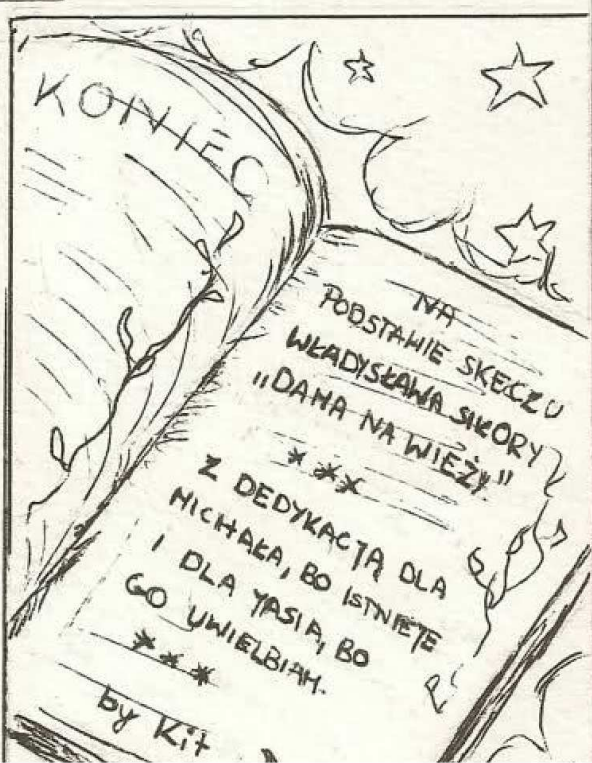 KONIEC
NA
PODSTAWIE SKECZU
WŁADYSŁAWA SIKORY
„DAMA NA WIEŻY"
***
Z DEDYKACJĄ DLA
MICHAŁA, BO ISTNIEJE
I DLA YASIA, BO
GO UWIELBIAM.
***
by Kit